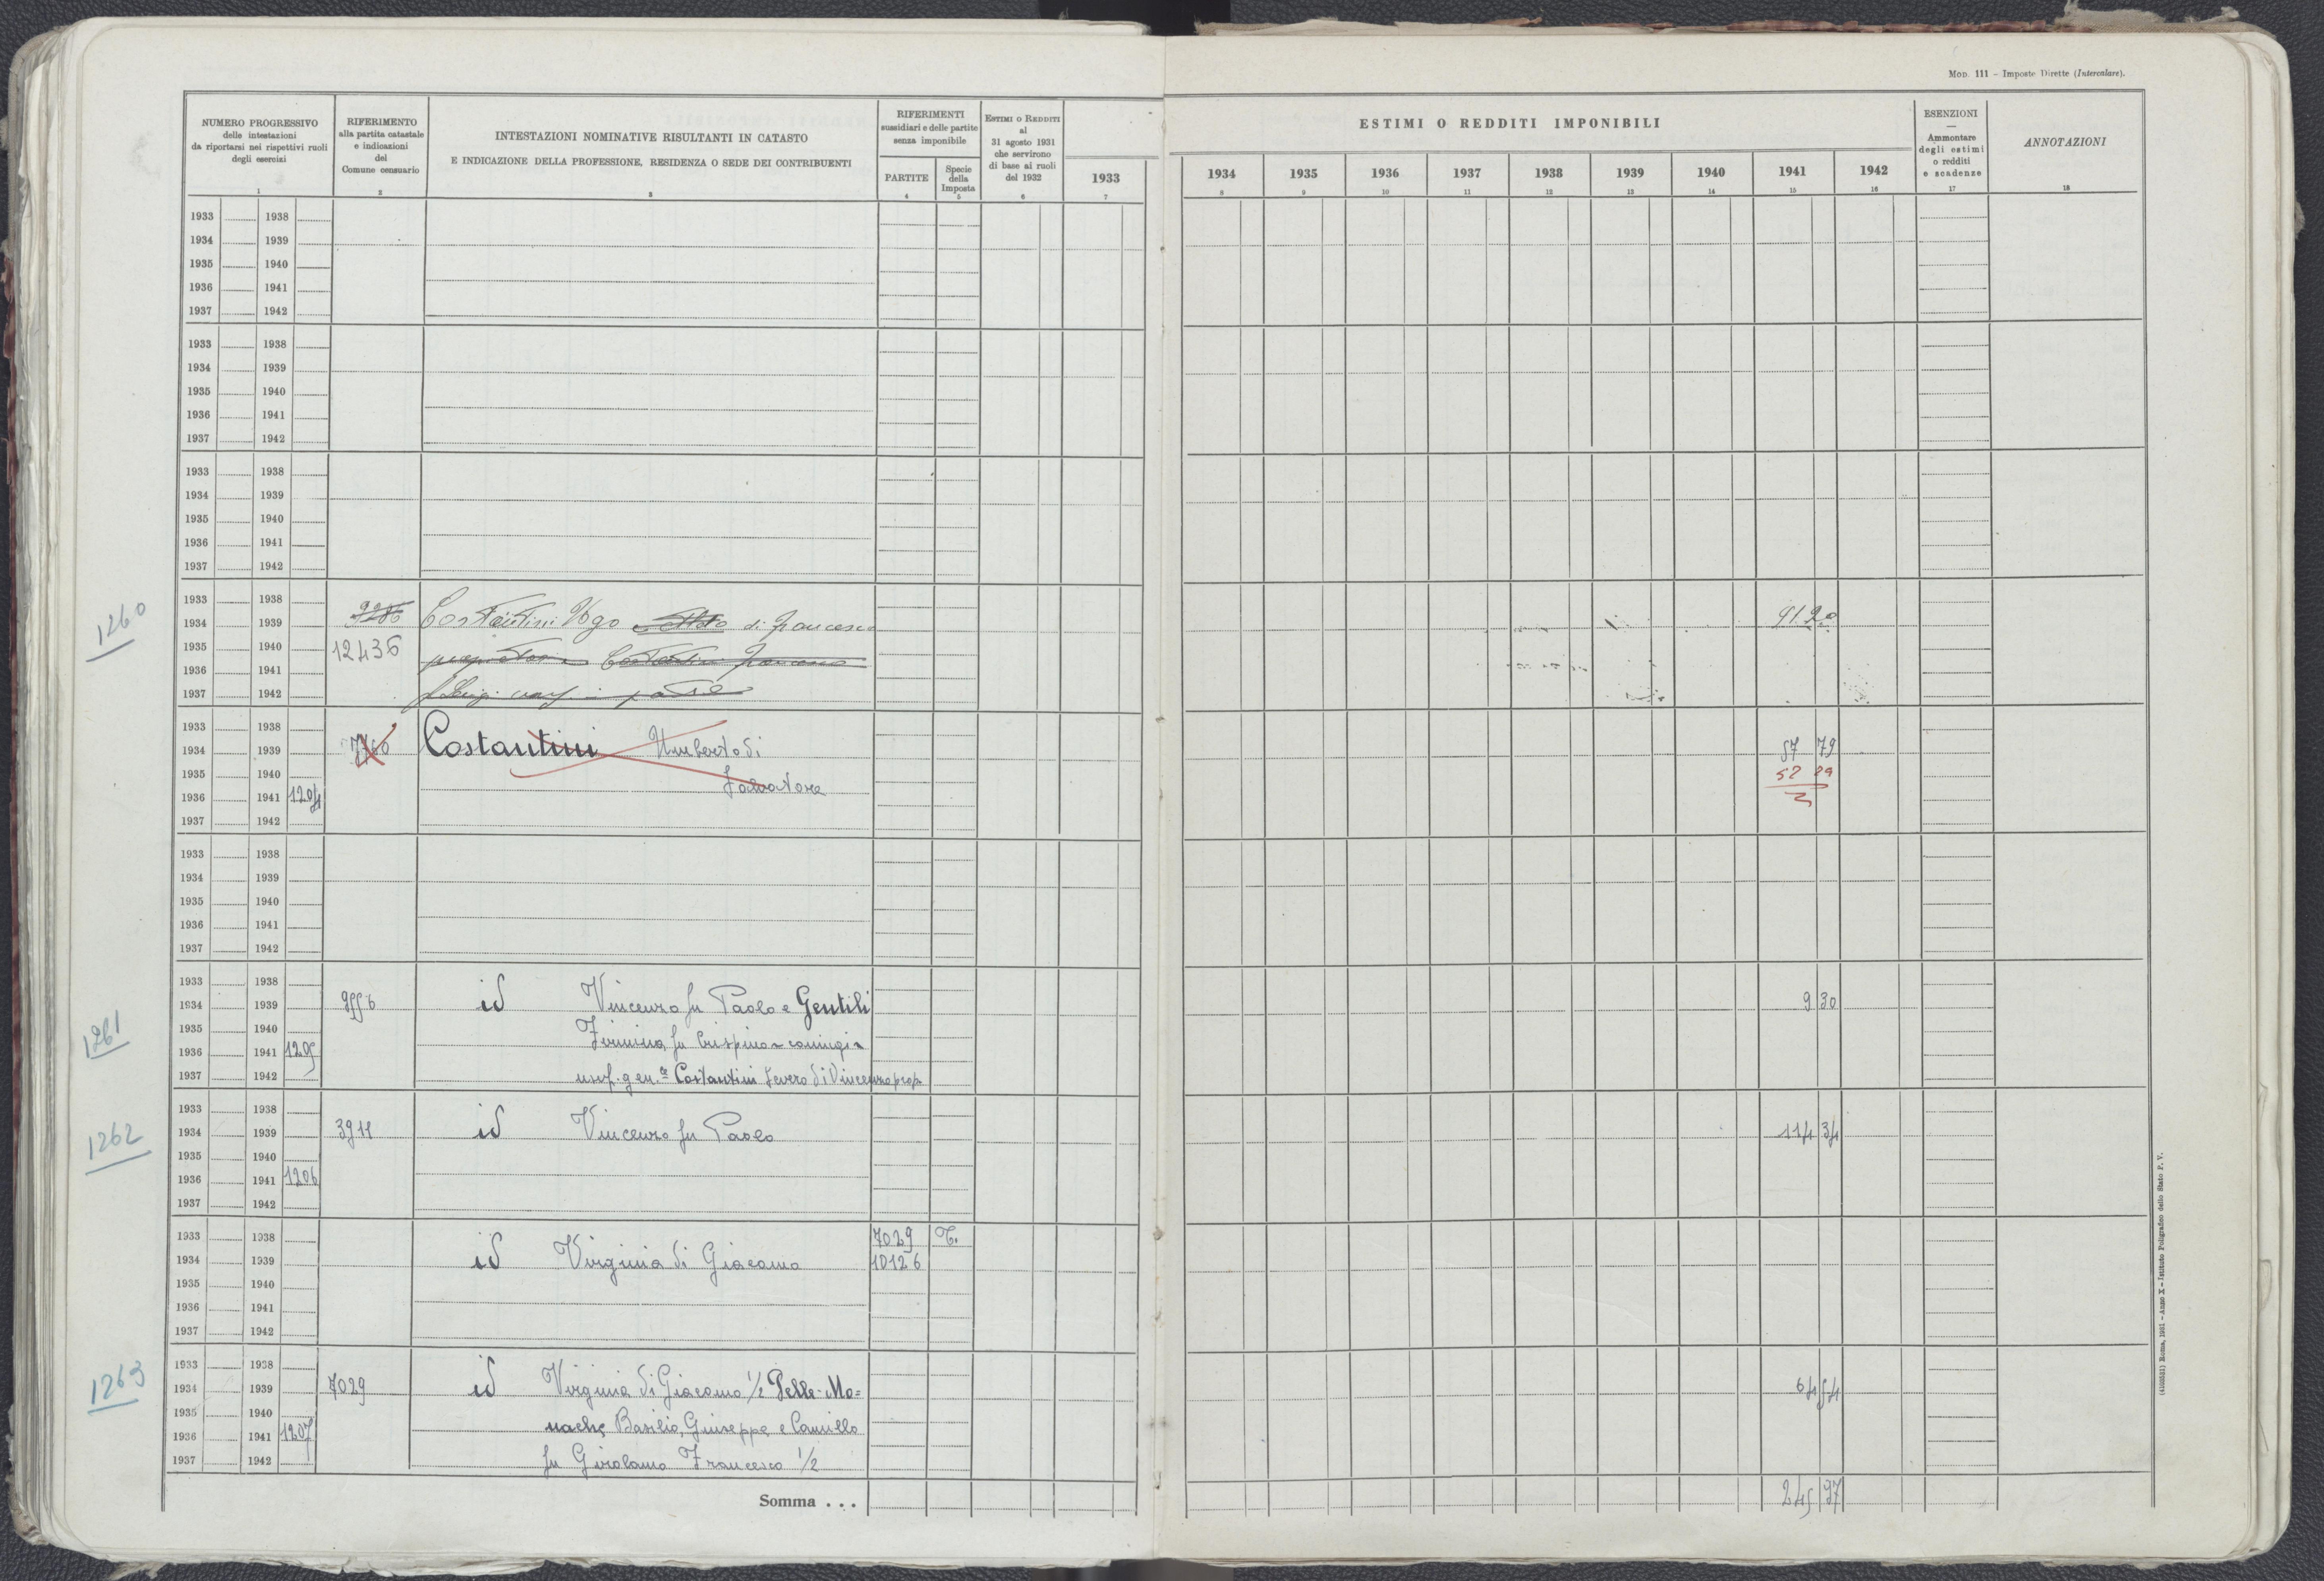 Mod. 111 - Imposte Dirette (Intercalare).
NUMERO PROGRESSIVO
delle intestazioni
da riportarsi nei rispettivi ruoli
degli esercizi
1
RIFERIMENTO
alla partita catastale
e indicazioni
del
Comune censuario
2
INTESTAZIONI NOMINATIVE RISULTANTI IN CATASTO
E INDICAZIONE DELLA PROFESSIONE, RESIDENZA O SEDE DEI CONTRIBUENTI
3
RIFERIMENTI
sussidiari e delle partite
senza imponibile
PARTITE
4
Specie
della
Imposta
5
ESTIMI O REDDITI
al
31 agosto 1931
che servirono
di base ai ruoli
del 1932
6
ESTIMI O REDDITI IMPONIBILI
1933 1934 1935 1936 1937 1938 1939 1940 1941 1942
7 8 9 10 11 12 13 14 15 16
ESENZIONI
—
Ammontare
degli estimi
o redditi
e scadenze
17
ANNOTAZIONI
18
1933 1938
1934 1939
1935 1940
1936 1941
1937 1942
1933 1938
1934 1939
1935 1940
1936 1941
1937 1942
1933 1938
1934 1939
1935 1940
1936 1941
1937 1942
1260
1933 1938
1934 1939 Costantini Ugo di Francesco 91.20
1935 1940 12436 Costantini Francesco
1936 1941
1937 1942 Luigi usuf. in parte
1933 1938
1934 1939 7760 Costantini Umberto di 57 79
1935 1940 Salvatore 52 29
1936 1941 1204
1937 1942
1933 1938
1934 1939
1935 1940
1936 1941
1937 1942
1261
1933 1938
1934 1939 id Vincenzo fu Paolo e Gentili 9 30
1935 1940 fu Crispino coniugi
1936 1941 1205
1937 1942 usuf. gen. Costantini Severo di Vincenzo prop
1262
1933 1938
1934 1939 3911 id Vincenzo fu Paolo 114 34
1935 1940
1936 1941 1206
1937 1942
1933 1938 7029 T.
1934 1939 id Virginia di Giacomo 10126
1935 1940
1936 1941
1937 1942
1263
1933 1938
1934 1939 7029 id Virginia di Giacomo 1/2 Pelle-Mo= 64 54
1935 1940
1936 1941 1207 nache Basilio, Giuseppe e Camillo
1937 1942 fu Girolamo Francesco 1/2
Somma . . . 245 97
(4100521) Roma, 1931 - Anno X - Istituto Poligrafico dello Stato P. V.